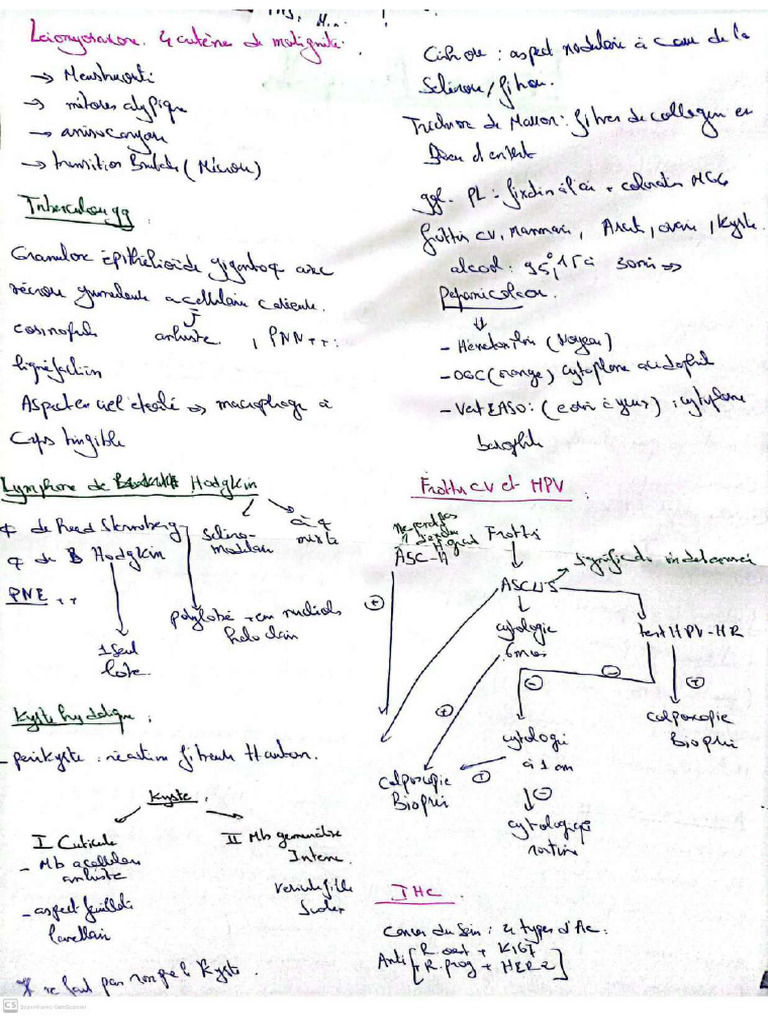 Leiomyosarcome 4 critère de malignité.
→ Monstruosité
→ mitoses atypique
→ anisocaryose
→ transition Brutale (Nécrose)
Tuberculose gg
Granulome épithélioïde gigantoq avec
nécrose acellulaire caséeuse.
eosinophile anhiste, PNN ++ :
liquéfaction
Aspect en ciel étoilé ⇒ macrophage à
Corps tingible
Lymphome de Hodgkin
φ de Reed Sternberg
φ de Hodgkin
PNE ++
sclero-
nodulaire
à φ
mixte
1 seul
lobe.
polylobé + en nucléole
halo clair
Kyste hydatique :
- perikyste : réaction fibreuse
Kyste.
I Cuticule
- Mb acellulaire
anhiste
- aspect feuilleté
lamellaire
II Mb germinative
Interne.
vesicule fille
Scolex
* ne faut pas rompre le Kyste.
Cirhose : aspect nodulaire à cause de la
Sclérose/fibrose.
Trichrome de Masson : fibres de collagen en
Bleu
ggl. PL : fixation à l'air + coloration MGG
frottis CV, Mammaire, Ascite, ovaire, Kyste.
alcool : 95° 15 à 30min ⇒
Papanicolaou.
- Hématoxyline (Noyau)
- OGC (orange) cytoplasme acidophile
- Vert EASO : (eosin) : cytoplasme
basophile
Frottis CV et HPV :
ne perd pas
ASC-H
Frottis
ASCUS
signification indéterminée
cytologie
6 mois
test HPV-HR
cytologie
à 1 an
colposcopie
Biopsie
Colposcopie
Biopsie
cytologique
routine
IHC
Cancer du sein : 4 types d'Ac :
Anti [R. oest + KI67
+ R. prog + HER2]
CS Scanned with CamScanner